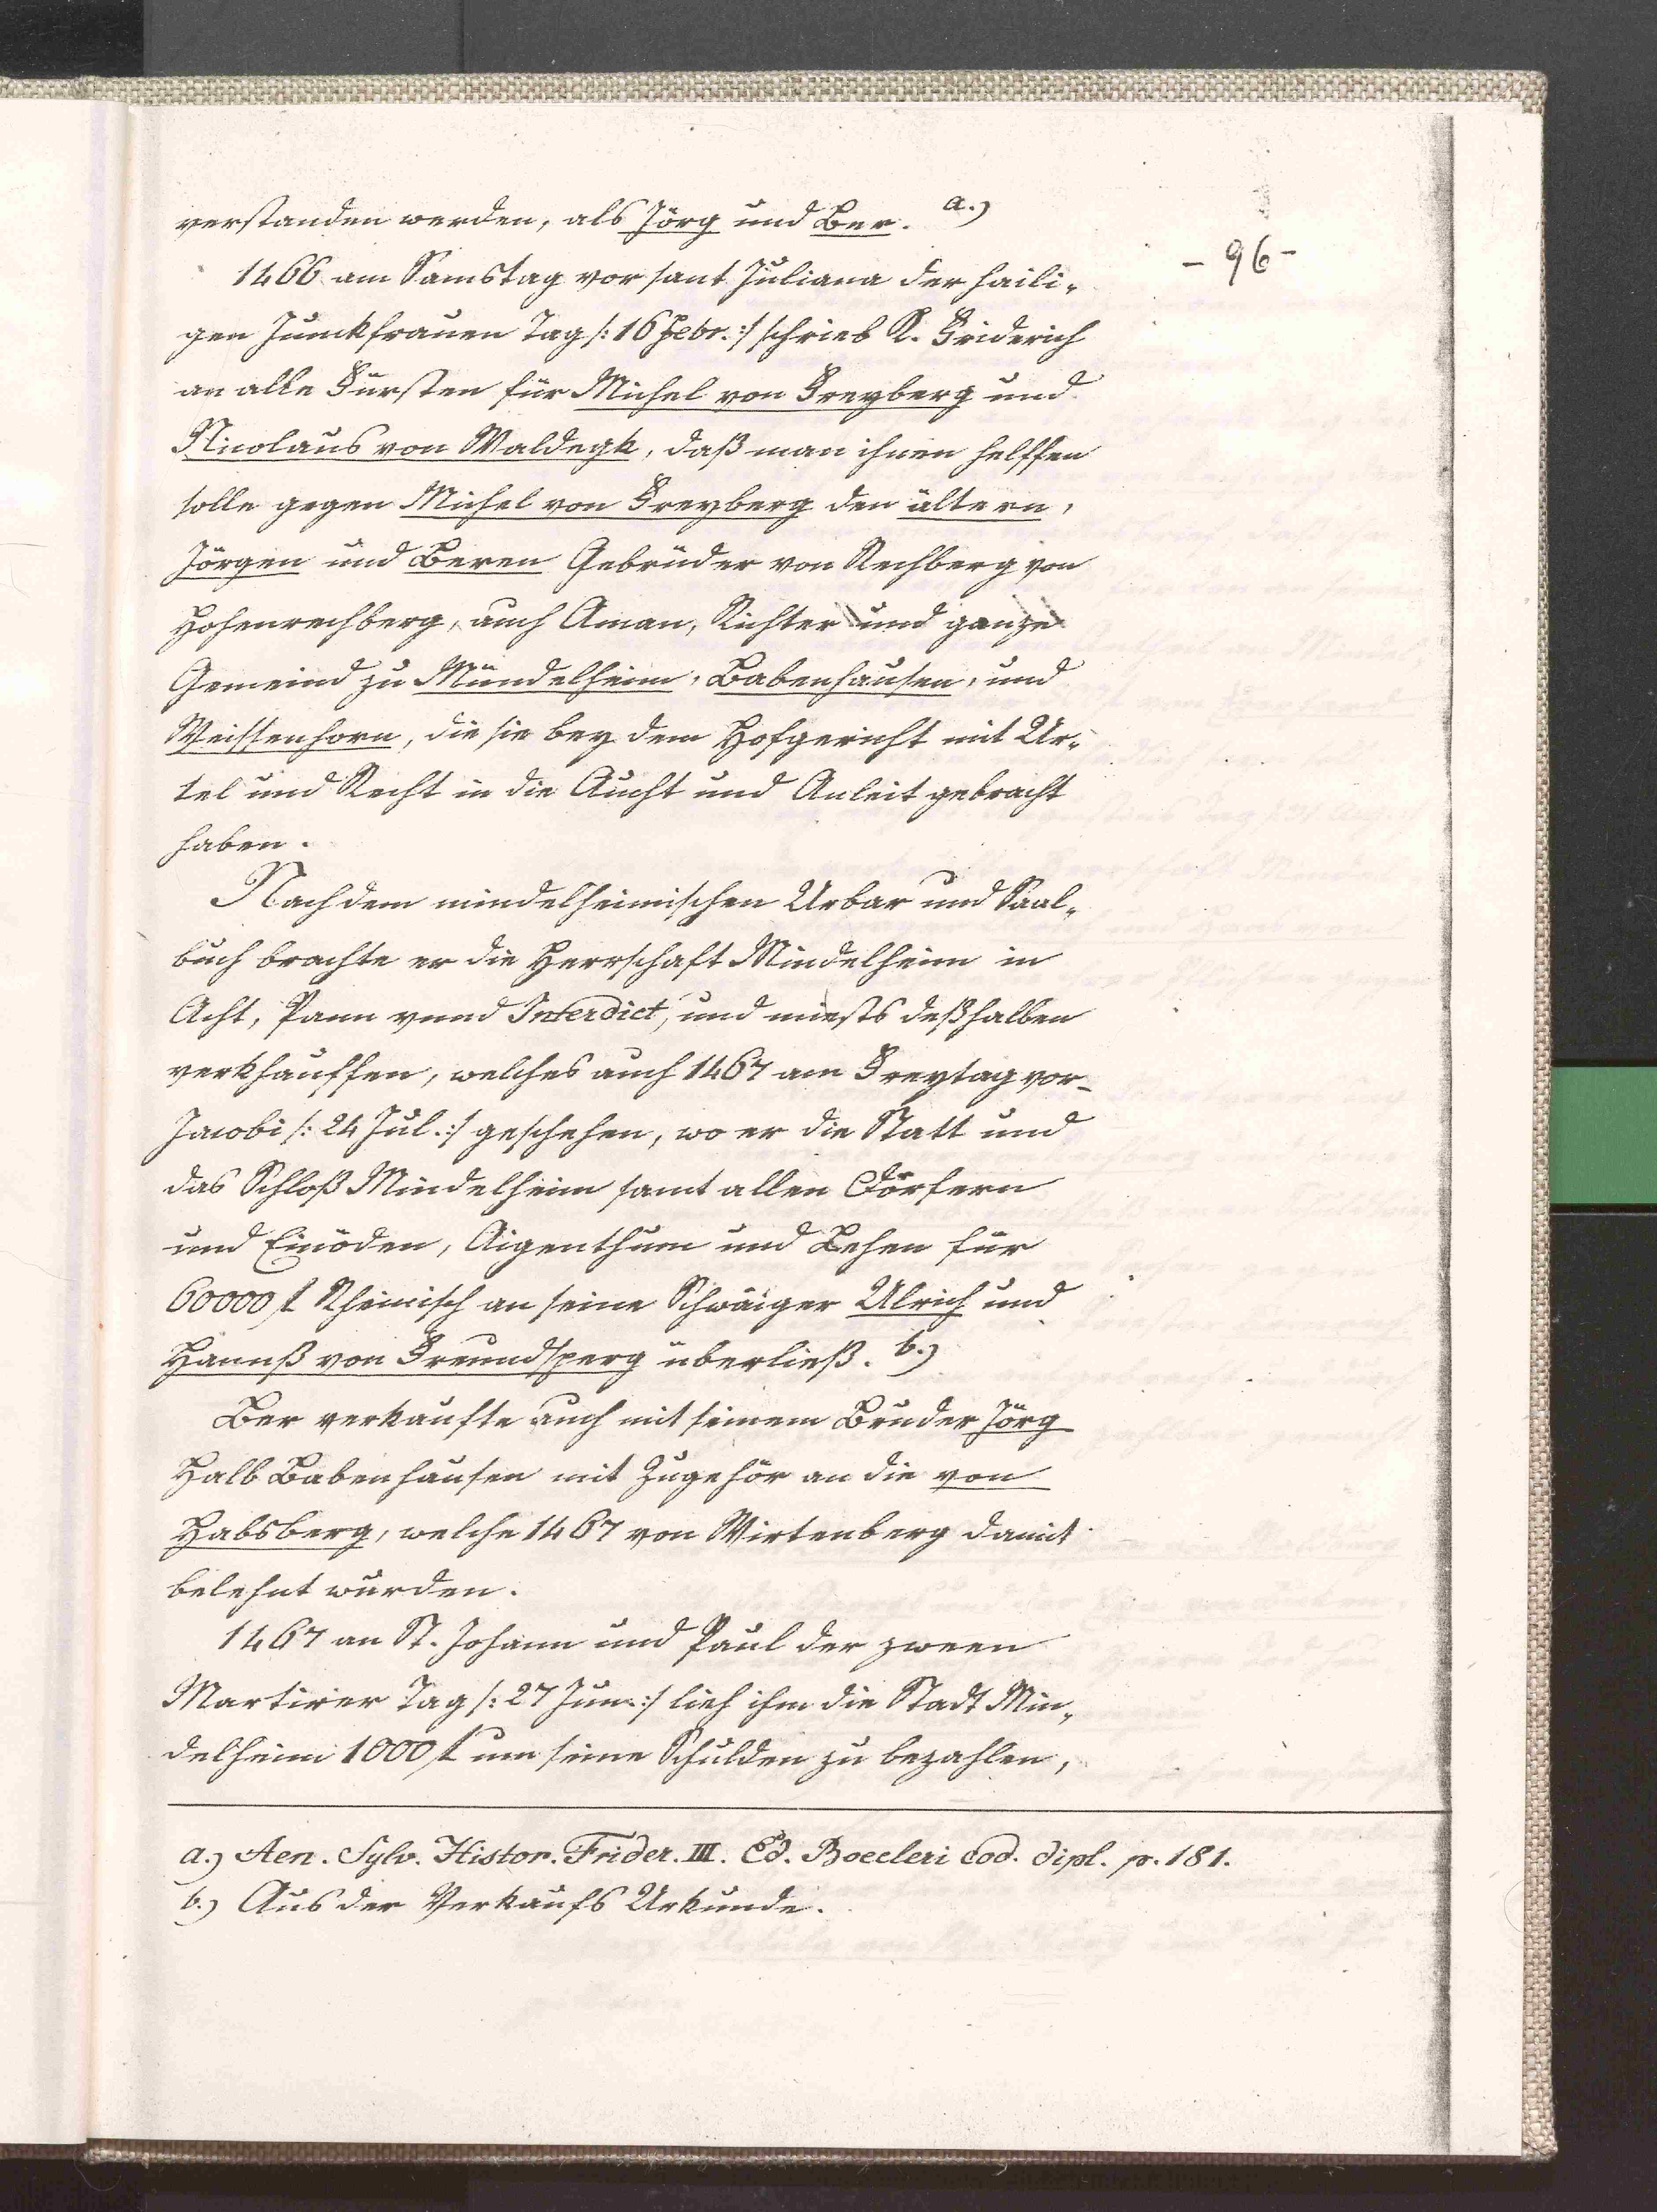 verstanden werden, als Jörg und Ber. a.)
- 96 -
1466 am Samstag vor sant Juliana der haili-
gen Junckfrauen Tag /: 16 Febr. :/ schrieb K. Friderich
an alle Fürsten für Michel von Freyberg und
Nicolaus von Waldegk, daß man ihnen helffen
solle gegen Michel von Freyberg den ältern,
Jörgen und Beren Gebrüder von Rechberg von
Hohenrechberg, auch Aman, Richter und ganze
Gemeind zu Mündelheim, Babenhausen, und
Weissenhorn, die sie bey dem Hofgericht mit Ur-
tel und Recht in die Aucht und Anleit gebracht
haben.
Nach dem mindelheimischen Urbar und Saal-
buch brachte er die Herrschaft Mindelheim in
Acht, Pann vnnd Interdict, und miests deßhalben
verkhauffen, welches auch 1467 am Freytag vor
Jacobi /: 24 Jul. :/ geschehen, wo er die Statt und
das Schloß Mindelheim samt allen Dörfern
und Einöden, Aigenthum und Lehen für
60000 f Rheinisch an seine Schwäiger Ulrich und
Hannß von Freundsperg überließ. b.)
Ber verkaufte auch mit seinem Bruder Jörg
Halb Babenhausen mit Zugehör an die von
Habsberg, welche 1467 von Wirtenberg damit
belehnt wurden.
1467 an St. Johann und Paul der zween
Martirer Tag /: 27 Jun. :/ lieh ihm die Stadt Min-
delheim 1000 f um seine Schulden zu bezahlen,
a.) Aen. Sylv. Histor. Frider. III. Ed. Boecleri Cod. dipl. p. 181.
b.) Aus der Verkaufs Urkunde.